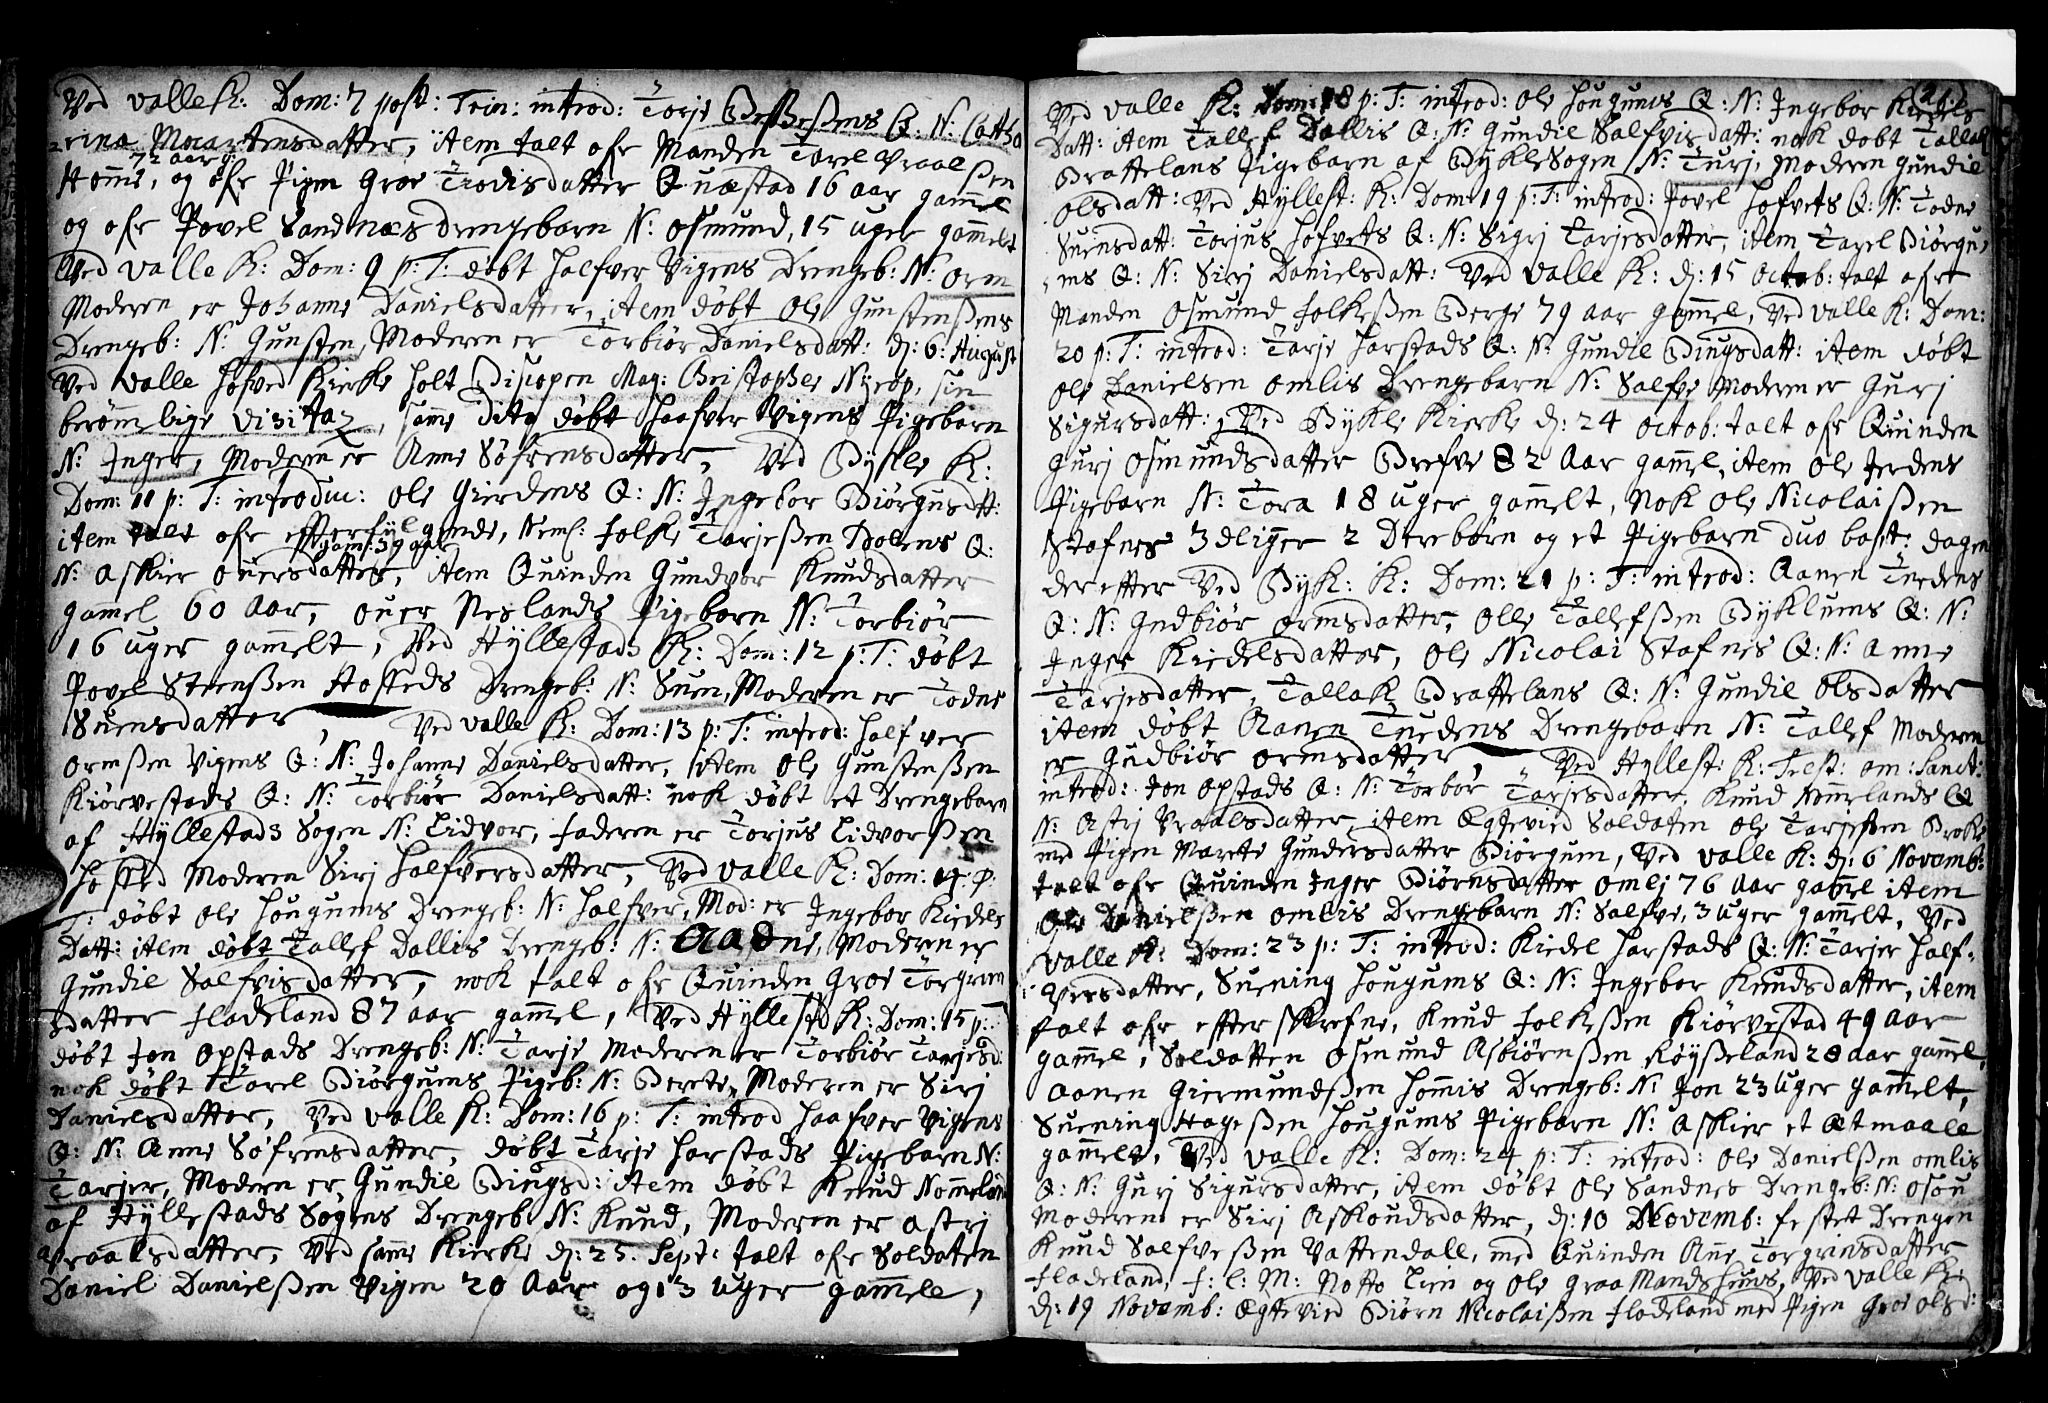 Ved Valle K: Dom: 7 post: Trin: introd: Torje Q: N: Catha
rina Maartensdatter, item talt ofr Manden Tarel Vraalßen
72 aar g:
Homme, og ofr Pigen Groe Tiodisdatter Quæstad 16 aar gammel
og ofr Povel Sandnæs drengebarn N: Osmund, 15 uger gammelt
Ved Valle K: Dom: 9 p: T: døbt Halfver Vigens Drengeb: N: Orm
Moderen er Johanne Danielsdatter, item døbt Ole Gunstenßens
Drengeb: N: Gunsten, Moderen er Torbiør Danielsdatt: d: 6: August
Ved Valle Hofved Kirke holt Biscopen Mag: Christopher Nyrop, sin
berømmelige Visitaz, samme dito døbt Haafver Vigens Pigebarn
N: Inger, Moderen er Anne Søfrensdatter, Ved Bykle K:
Dom: 11 p: T: introduc: Ole Gierdens Q: N: Ingebor Biørgusdtt:
item talt ofr efterfylgende, Neml: Folke Tarjeßen Q:
gam: 39 aar
N: Askier Ouersdatter, item Quinden Gundvor Knudsdatter
gammel 60 Aar, ouer Neslands Pigebarn N: Torbiør
16 uger gammelt, Ved Hyllestads K: Dom: 12 p: T: døbt
Povel Steenßen Hoffeds Drengeb: N: Suen, Moderen er Todne
Suensdatter, Ved Valle K: Dom: 13 p: T: introd: Halfver
Ormßen Vigens Q: N: Johanne Danielsdatter, item Ole Gunstenßen
Kiørvestads Q: N: Torbiør Danielsdatt: nok døbt et Drengebarn
af Hyllestads Sogen N: Tidvor, Faderen er Torjus Tidvorßen
Hoffed Moderen Sirj Halfversdatter, Ved Valle K: Dom: 14 p:
T: døbt Ole Hougums Drengeb: N: Halfver, Mod: er Ingebor Kiedels
Datt: item døbt Tallef Dallis Drengeb: N: Aadne, Moderen er
Gundil Salfvisdatter, nok talt ofr Quinden Groe Torgrim
sdatter Fladeland 87 aar gammel, Ved Hyllestd K: Dom: 15 p:
døbt Jon Opstads Drengeb: N: Tarje Moderen er Torbiør Tarjesd:
nok døbt Tarel Biørgums Pigeb: N: Berete, Moderen er Sirj
Danielsdatter, Ved Valle K: Dom: 16 p: T: introd Haafver Vigens
Q: N: Anne Søfrensdatter, døbt Tarje Harstads Pigebarn N:
Tarjer, Moderen er Gundil Bingsd: item døbt Knud Nommeland
af Hyllestads Sogens Drengeb: N: Knud, Moderen er Astrj
Vraalsdatter, Ved samme Kirke d: 25. Sept: talt ofr Soldaten
Daniel Danielßen Vigen 20 Aar og 3 uger gammele,
Ved Valle K: Dom: 18 p: T: introd: Ole Hougums Q: N: Ingebor Kiedels
Datt: item Tallef Dallis Q: N: Gundil Salfvisdatt: nok døbt Tallak
Brattelans Pigebarn af Bykle Sogen N: Turj, Moderen Gundil
Olsdatt: Ved Hyllest: K: Dom: 19 p: T: introd: Povel Hofvets Q: N: Todne
Suensdatt: Torjus Hofvets Q: N: Sigrj Tarjesdatter, item Tarel Biørgu
ms Q: N: Sirj Danielsdatt: Ved Valle K: d: 15 Octob: talt ofr
Manden Osmund Folkeßen Berge 79 aar gammel, Ved Valle K: Dom:
20 p: T: introd: Tarje Harstads Q: N: Gundil Bingsdatt: item døbt
Ole Danielsen Omlis Drengebarn N: Salfve Moderen er Gurj
Sigursdatt: Ved Bykle Kierke d: 24 Octob: talt ofr Quinden
Gurj Osmundsdatter Brefve 82 Aar gammel, item Ole Jerdens
Pigebarn N: Tora 18 uger gammelt, nok Ole Nicolaißen
Stofnes 3dlinger 2 Drebørn og et Pigebarn duo bapt: dagen
der efter Ved Byk: K: Dom: 21 p: T: introd: Aanen Tuedens
Q: N: Gudbiør Ormsdatter, Olle Tallefßen Byklums Q: N:
Inger Kiedelsdatter, Ole Nicolai Stofnes Q: N: Anne
Tarjesdatter, Tallak Brattelans Q: N: Gundil Olsdatter
item døbt Aanen Tuedens Drengebarn N: Tallef Moderen
er Gudbiør Ormsdatter, Ved Hyllest: K: Fest: om: Sanct:
introd: Jon Opstads Q: N: Torbor Tarjesdatter, Knud Nommelands Q
N: Astrj Vraalsdatter, item Egtevied Soldaten Ole Tarjeßen Brokke
med Pigen Marete Gundersdatter Biørgum, Ved Valle K: d: 6 Novemb:
talt ofr Quinden Inger Biørnsdatter Omlj 76 Aar gammel item
Ole Danielßen Omlis Drengebarn N: Salfve, 3 uger gammelt, Ved
Valle K: Dom: 23 p: T: introd: Kiedel Harstads Q: N: Tarjer Half-
versdatter, Suening Hougums Q: N: Ingebor Knudsdatter, item
talt ofr efterskrefne, Knud Folkeßen Kiørvestad 49 Aar
gammel, Soldatten Osmund Asbiørnßen Røyßeland 28 aar gammel,
Aanen Giermundßen Hommis Drengeb: N: Jon 23 uger gammelt,
Suening Hageßen Hougums Pigebarn N: Askier et Ætmaale
gammelt, Ved Valle K: Dom: 24 p: T: introd: Ole Danielßen Omlis
Q: N: Gurj Sigursdatter, item døbt Ole Sandnes Drengeb: N: Osou
Moderen er Sirj Askoudsdatter, d: 10 Novemb: festet Drengen
Knud Salfveßen Vattendall, med Quinden Ane Torgrinsdatter
Fladeland, f: l: M: Notto Lien og Ole Graa Mandshuus, Ved Valle K:
d: 19 Novemb: Egtevied Biørn Nicolaißen Fladeland med Pigen Groe Olsd: